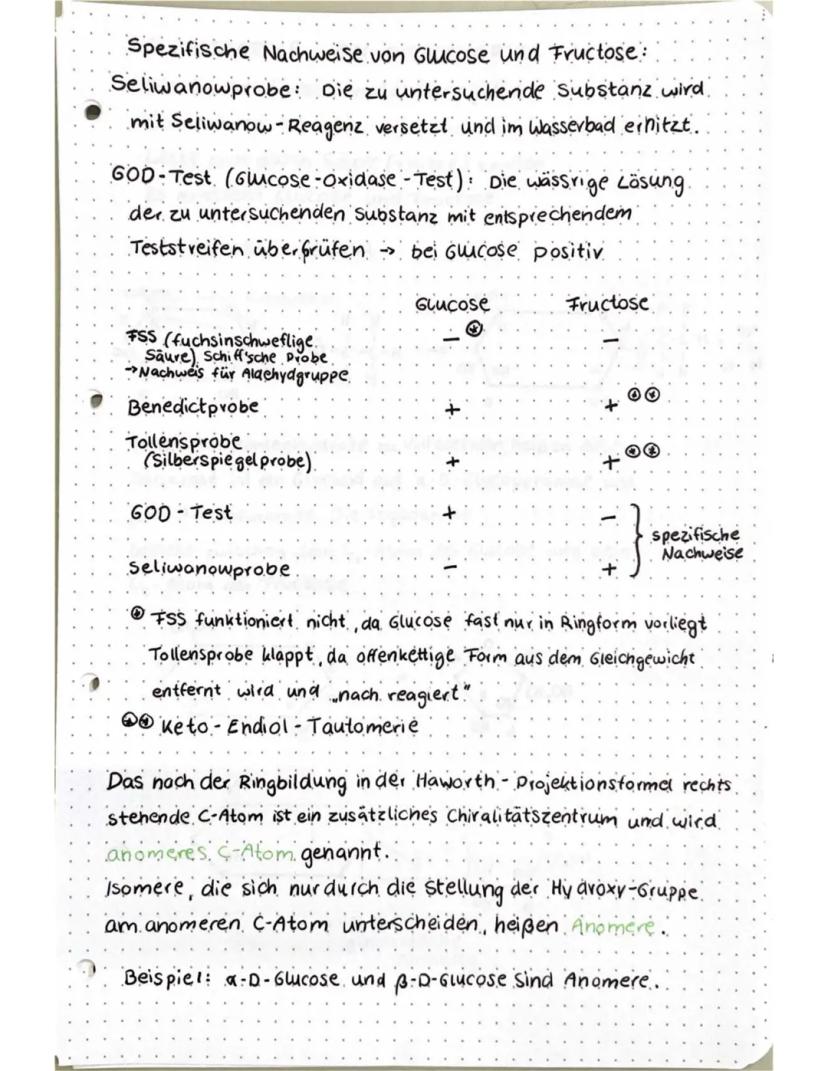 Spezifische Nachweise von Glucose und Fructose:
Seliwanowprobe: Die zu untersuchende Substanz wird
mit Seliwanow-Reagenz versetzt und im Wasserbad erhitzt.
GOD-Test (Glucose-Oxidase-Test): Die wässrige Lösung
der zu untersuchenden Substanz mit entsprechendem
Teststreifen überprüfen → bei Glucose positiv
Glucose Fructose
FSS (fuchsinschweflige Säure) Schiff'sche Probe → Nachweis für Aldehydgruppe – ⊛ –
Benedictprobe + + ⊛⊛
Tollensprobe
(Silberspiegelprobe) + + ⊛⊛
GOD-Test + –
spezifische
Nachweise
Seliwanowprobe – +
⊛ FSS funktioniert nicht, da Glucose fast nur in Ringform vorliegt
Tollensprobe klappt, da offenkettige Form aus dem Gleichgewicht
entfernt wird und „nach reagiert"
⊛⊛ Keto-Endiol-Tautomerie
Das nach der Ringbildung in der Haworth-Projektionsformel rechts
stehende C-Atom ist ein zusätzliches Chiralitätszentrum und wird
anomeres C-Atom genannt.
Isomere, die sich nur durch die Stellung der Hydroxy-Gruppe
am anomeren C-Atom unterscheiden, heißen Anomere.
Beispiel: α-D-Glucose und β-D-Glucose sind Anomere.